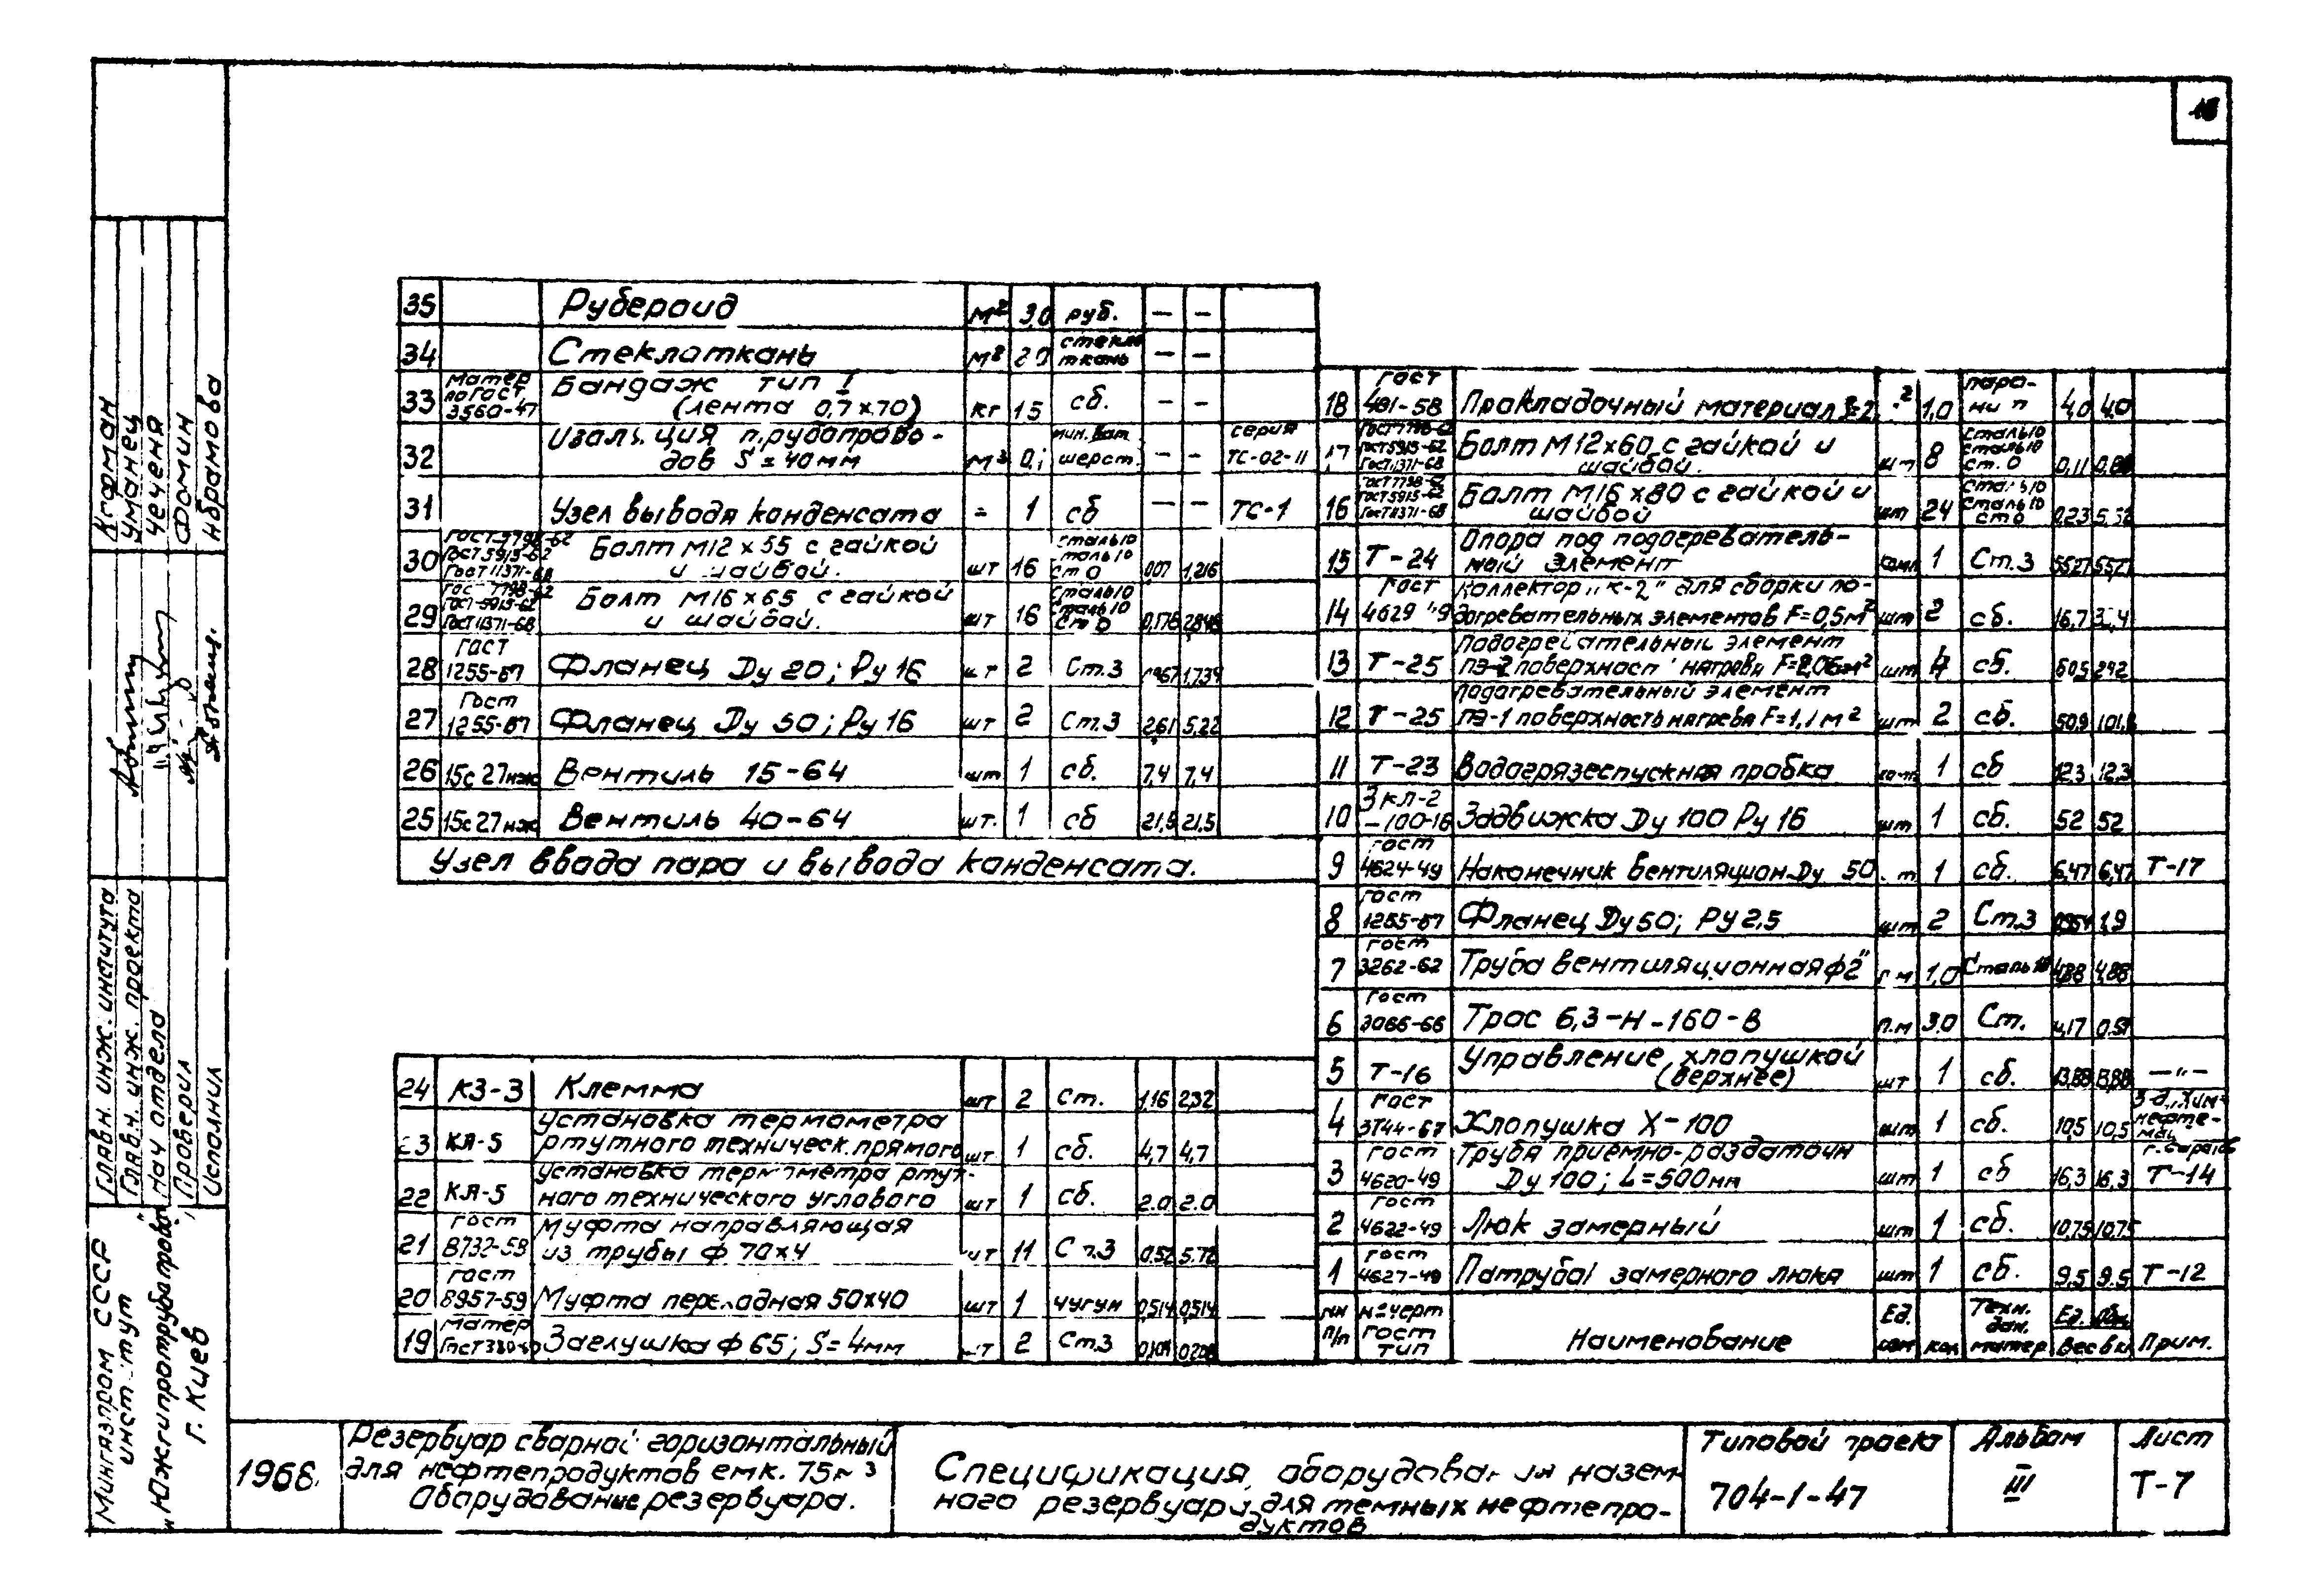 35 Рубероид м² 3,0 руб. — —
34 Стеклоткань м² стекло ткань — —
33 Матер по ГОСТ 3560-47 Бандаж тип I (лента 0,7×70) кг 15 сб. — —
32 Изоляция трубопрово-
дов S=40мм м³ шерст. — — серия ТС-02-11
31 Узел вывода конденсата 1 сб — — ТС-1
30 ГОСТ 7798-62 ГОСТ 5915-62 ГОСТ 11371-68 Болт М12×55 с гайкой
и шайбой. шт 16 сталь10 сталь10 ст0 1,216
29 ГОСТ 7798-62 ГОСТ 5915-62 ГОСТ 11371-68 Болт М16×65 с гайкой
и шайбой. шт 16 сталь10 сталь10 ст0 0,178
28 ГОСТ 1255-67 Фланец Ду 20; Ру 16 шт 2 Ст.3
27 ГОСТ 1255-67 Фланец Ду 50; Ру 16 шт 2 Ст.3 2,61 5,22
26 15с27нж Вентиль 15-64 шт 1 сб. 7,4 7,4
25 15с27нж Вентиль 40-64 шт. 1 сб 21,5 21,5
Узел ввода пара и вывода конденсата.
24 КЗ-3 Клемма шт 2 Ст. 1,16 2,32
23 КЛ-5 установка термометра
ртутного техническ. прямого шт. 1 сб. 4,7 4,7
22 КЛ-5 установка термометра ртут-
ного технического углового шт 1 сб. 2.0 2.0
21 ГОСТ 8732-58 Муфта направляющая
из трубы ф 70×4 шт 11 Ст.3 0.52 5.72
20 ГОСТ 8957-59 Муфта переходная 50×40 шт 1 чугун 0,514 0,514
19 Матер ГОСТ 380-60 Заглушка ф 65; S=4мм шт 2 Ст.3 0,104 0,208
18
18 ГОСТ 481-58 Прокладочный материал S=2 м² 1,0 паро-
нит 4,0 4,0
17 ГОСТ 7798-62 ГОСТ 5915-62 ГОСТ 11371-68 Болт М12×60 с гайкой и
шайбой. шт 8 Сталь10 Сталь10 Ст. 0 0,11 0,88
16 ГОСТ 7798-62 ГОСТ 5915-62 ГОСТ 11371-68 Болт М16×80 с гайкой и
шайбой шт 24 Сталь10 Сталь10 Ст0 0,23 5,52
15 Т-24 Опора под подогреватель-
ный элемент компл 1 Ст.3 55,27 55,27
14 ГОСТ 4629-49 Коллектор „К-2" для сборки по-
догревательных элементов F=0,5м² шт 2 сб. 16,7
13 Т-25 Подогревательный элемент
ПЭ-2 поверхность нагрева F=2,06м² шт 4 сб. 60,5 242
12 Т-25 Подогревательный элемент
ПЭ-1 поверхность нагрева F=1,1м² шт 2 сб. 50,9 101,8
11 Т-23 Водогрязеспускная пробка 1 сб 12,3 12,3
10 Зкл-2
-100-16 Задвижка Ду 100 Ру 16 шт 1 сб. 52 52
9 ГОСТ 4624-49 Наконечник вентиляцион. Ду 50 шт 1 сб. 6,47 6,47 Т-17
8 ГОСТ 1255-67 Фланец Ду 50; Ру 2,5 шт 2 Ст.3 1,9
7 ГОСТ 3262-62 Труба вентиляционная ф2" п.м 1,0 Сталь 10 4,88 4,88
6 ГОСТ 3066-66 Трос 6,3-Н-160-В п.м 3,0 Ст. 0,51
5 Т-16 Управление хлопушкой
(верхнее) шт 1 сб. 13,88 13,88 —"—
4 ГОСТ 3744-67 Хлопушка Х-100 шт 1 сб. 10,5 10,5 З-д „Хим-
нефте-
маш
г. Саратов
3 ГОСТ 4620-49 Труба приемно-раздаточн
Ду 100; L=500мм шт 1 сб 16,3 16,3 Т-14
2 ГОСТ 4622-49 Люк замерный шт 1 сб. 10,75 10,75
1 ГОСТ 4627-49 Патрубок замерного люка шт 1 сб. 9,5 9.5 Т-12
нн п/п №черт ГОСТ тип Наименование Ед. изм кол Техн. дан. матер Ед. Общ. Вес в кг Прим.
Кофман
Уманец
Чеченя
Фомин
Абрамова
Главн. инж. института
Главн. инж. проекта
Нач отдела
Проверил
Исполнил
Мингазпром СССР
институт
„Южгипротрубопровод"
г. Киев
1968г.
Резервуар сварной горизонтальный
для нефтепродуктов емк. 75м³
Оборудование резервуара.
Спецификация оборудования назем-
ного резервуара для темных нефтепро-
дуктов
Типовой проект
704-1-47
Альбом
III
Лист
Т-7